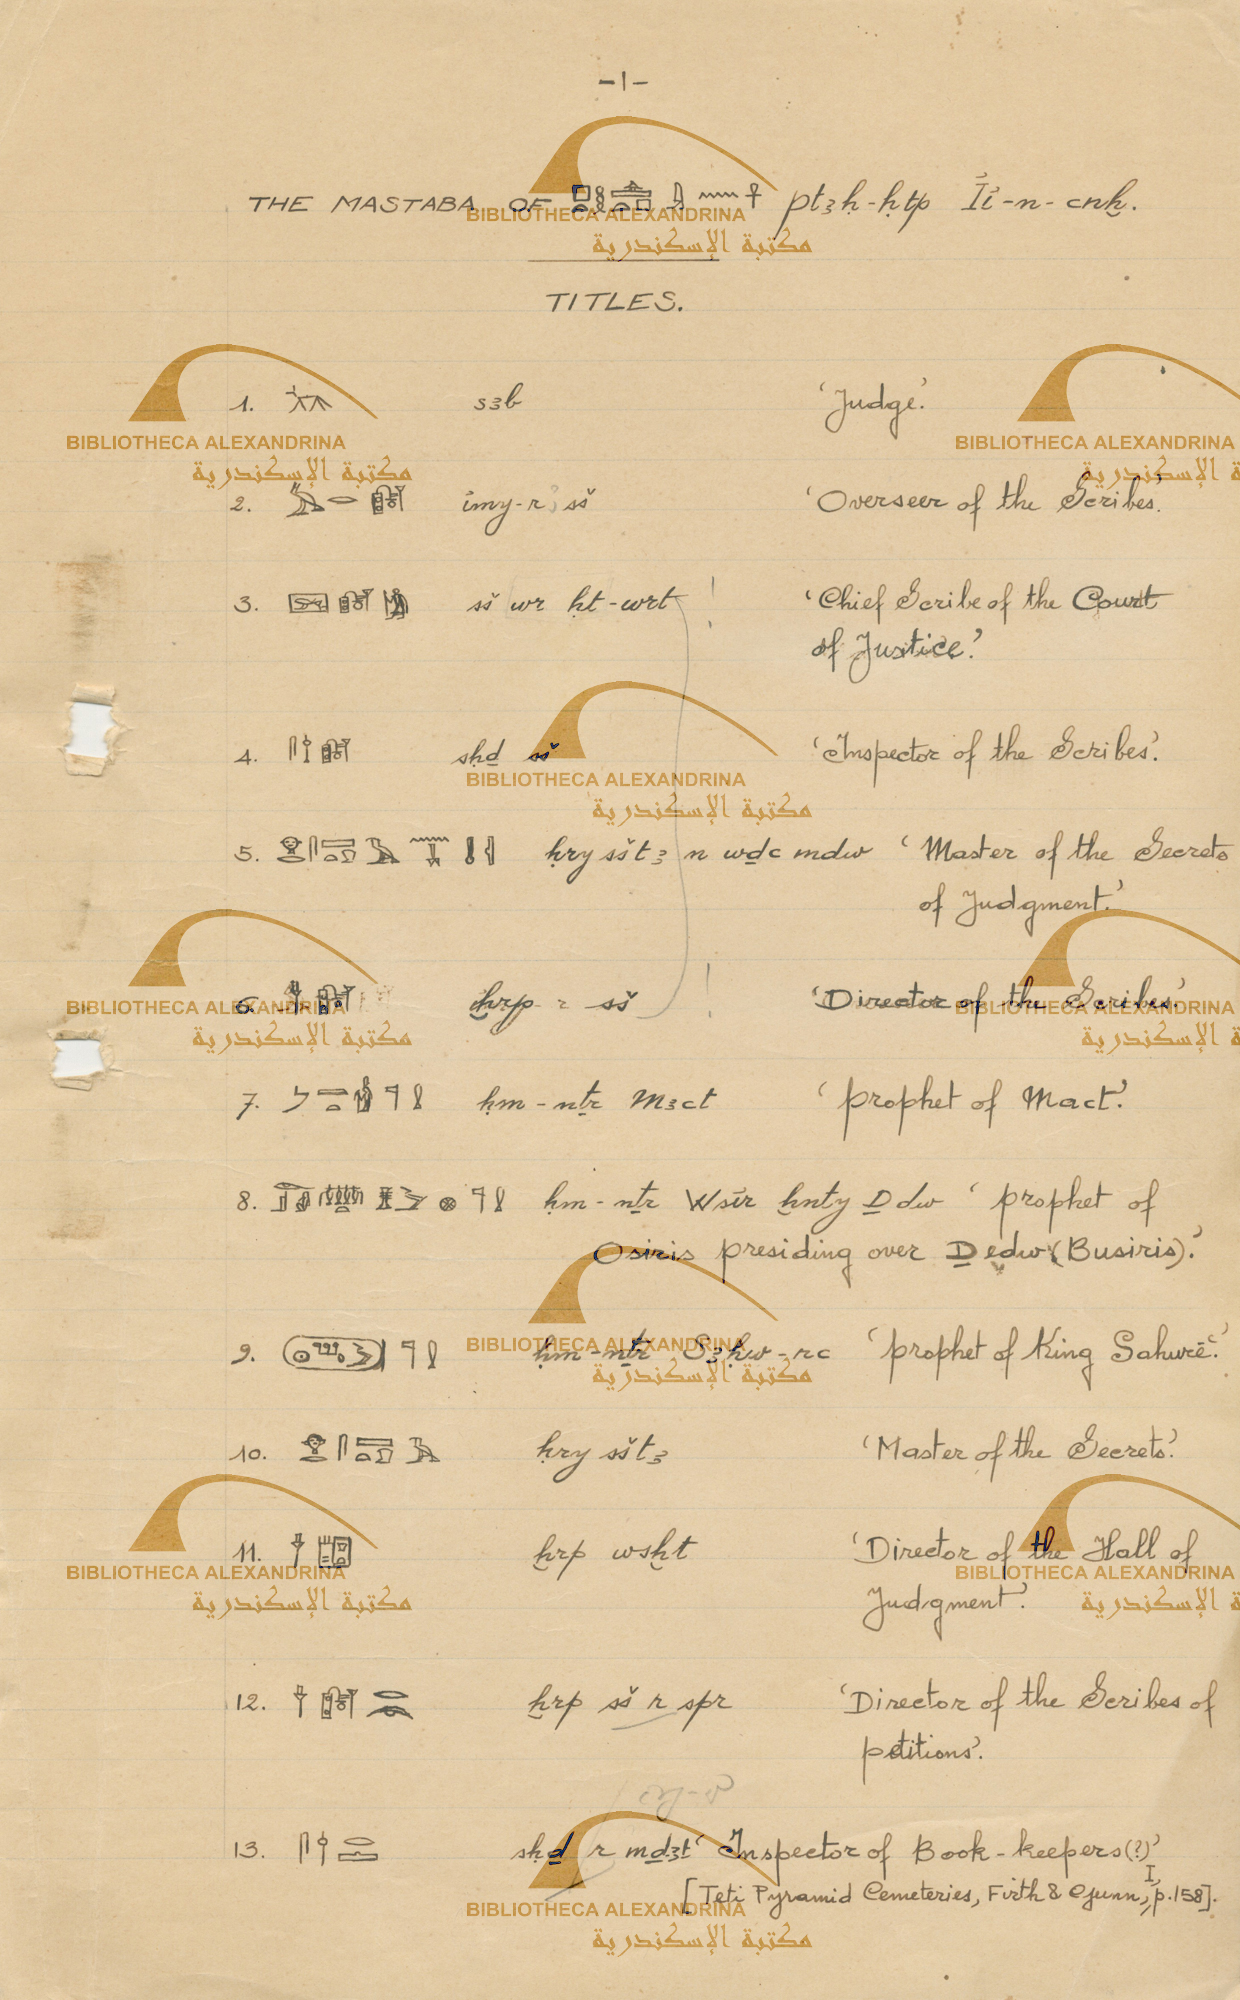 -1-
THE MASTABA OF ptꜣḥ-ḥtp Íí-n-cnḫ.
TITLES.
1. sꜣb 'Judge.'
2. ímy-r sš 'Overseer of the Scribes.'
3. sš wr ḥt-wrt ! 'Chief Scribe of the Court
of Justice.'
4. sḥḏ sš 'Inspector of the Scribes.'
5. ḥry sštꜣ n wḏc mdw 'Master of the Secrets
of Judgment.'
6. ḫrp sš ! 'Director of the Scribes.'
7. ḥm-nṯr Mꜣct 'prophet of Mact.'
8. ḥm-nṯr Wsír ḫnty Ḏdw 'prophet of
Osiris presiding over Ḏedw (Busiris).'
9. ḥm-nṯr Sꜣḥw-rc 'prophet of King Sahurēc.'
10. ḥry sštꜣ 'Master of the Secrets.'
11. ḫrp wsḫt 'Director of the Hall of
Judgment.'
12. ḫrp sš r spr 'Director of the Scribes of
petitions.'
13. sḥḏ r mḏꜣt 'Inspector of Book-keepers(?)'
[Teti Pyramid Cemeteries, Firth & Gunn, I, p.158].
BIBLIOTHECA ALEXANDRINA
مكتبة الإسكندرية